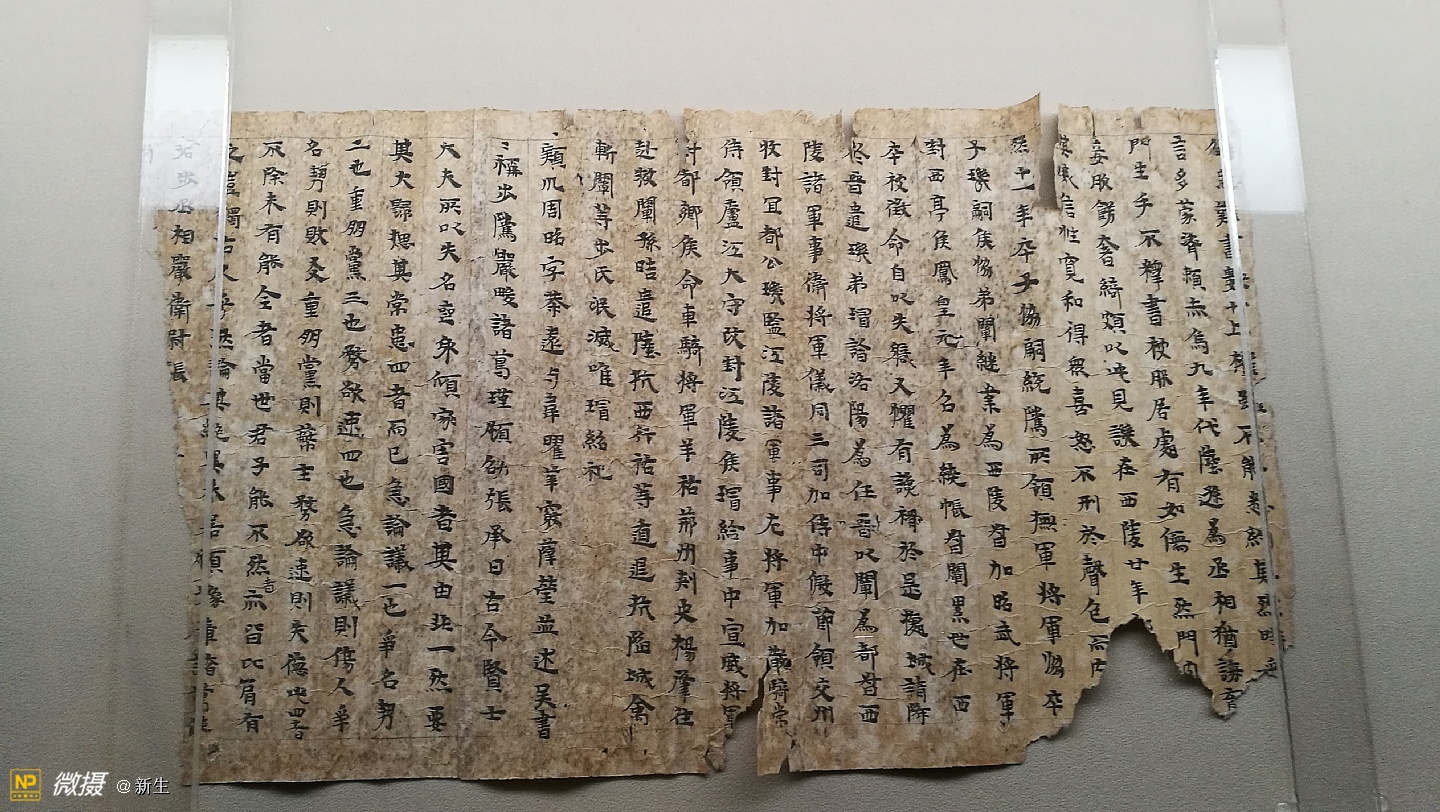 難書數十上權雖不能悉然其烈明
言多蒙濟賴赤烏九年代陸遜為丞相猶誨育
門生手不釋書被服居處有如儒生然門內
妾服飾奢綺頗以此見譏在西陵廿年
威信性寬和得眾喜怒不形於聲色而
十一年卒子協嗣統騭所領撫軍將軍協卒
子璣嗣侯協弟闡繼業為西陵督加昭武將軍
封西亭侯鳳皇元年召為繞帳督闡累世在西
卒被徵命自以失職又懼有讒禍於是據城請降
晉遣璣弟璿詣洛陽為任晉以闡為都督西
陵諸軍事衞將軍儀同三司加侍中假節領交州
牧封宜都公璣監江陵諸軍事左將軍加散騎常
侍領廬江大守改封江陵侯璿給事中宣威將軍
封都鄉侯命車騎將軍羊祜荊州刺史楊肇往
赴救闡孫晧遣陸抗西行祜等遁退抗陷城禽
斬闡等步氏泯滅唯璿紹祀
潁川周昭字恭遠與韋曜華覈薛瑩並述吳書
稱步騭嚴畯諸葛瑾顧劭張承曰古今賢士
大夫所以失名喪身傾家害國者其由非一然要
其大歸揔其常患四者而已急論議一也爭名勢
二也重朋黨三也務欲速四也急論議則傷人爭
名勢則敗友重朋黨則蔽主務欲速則失德此四者
不除未有能全者當世君子能不然者亦皆比肩有
之豈獨古人乎然論其絕異未若顧豫章諸葛
步丞相嚴衛尉張
NP 微摄 @新生